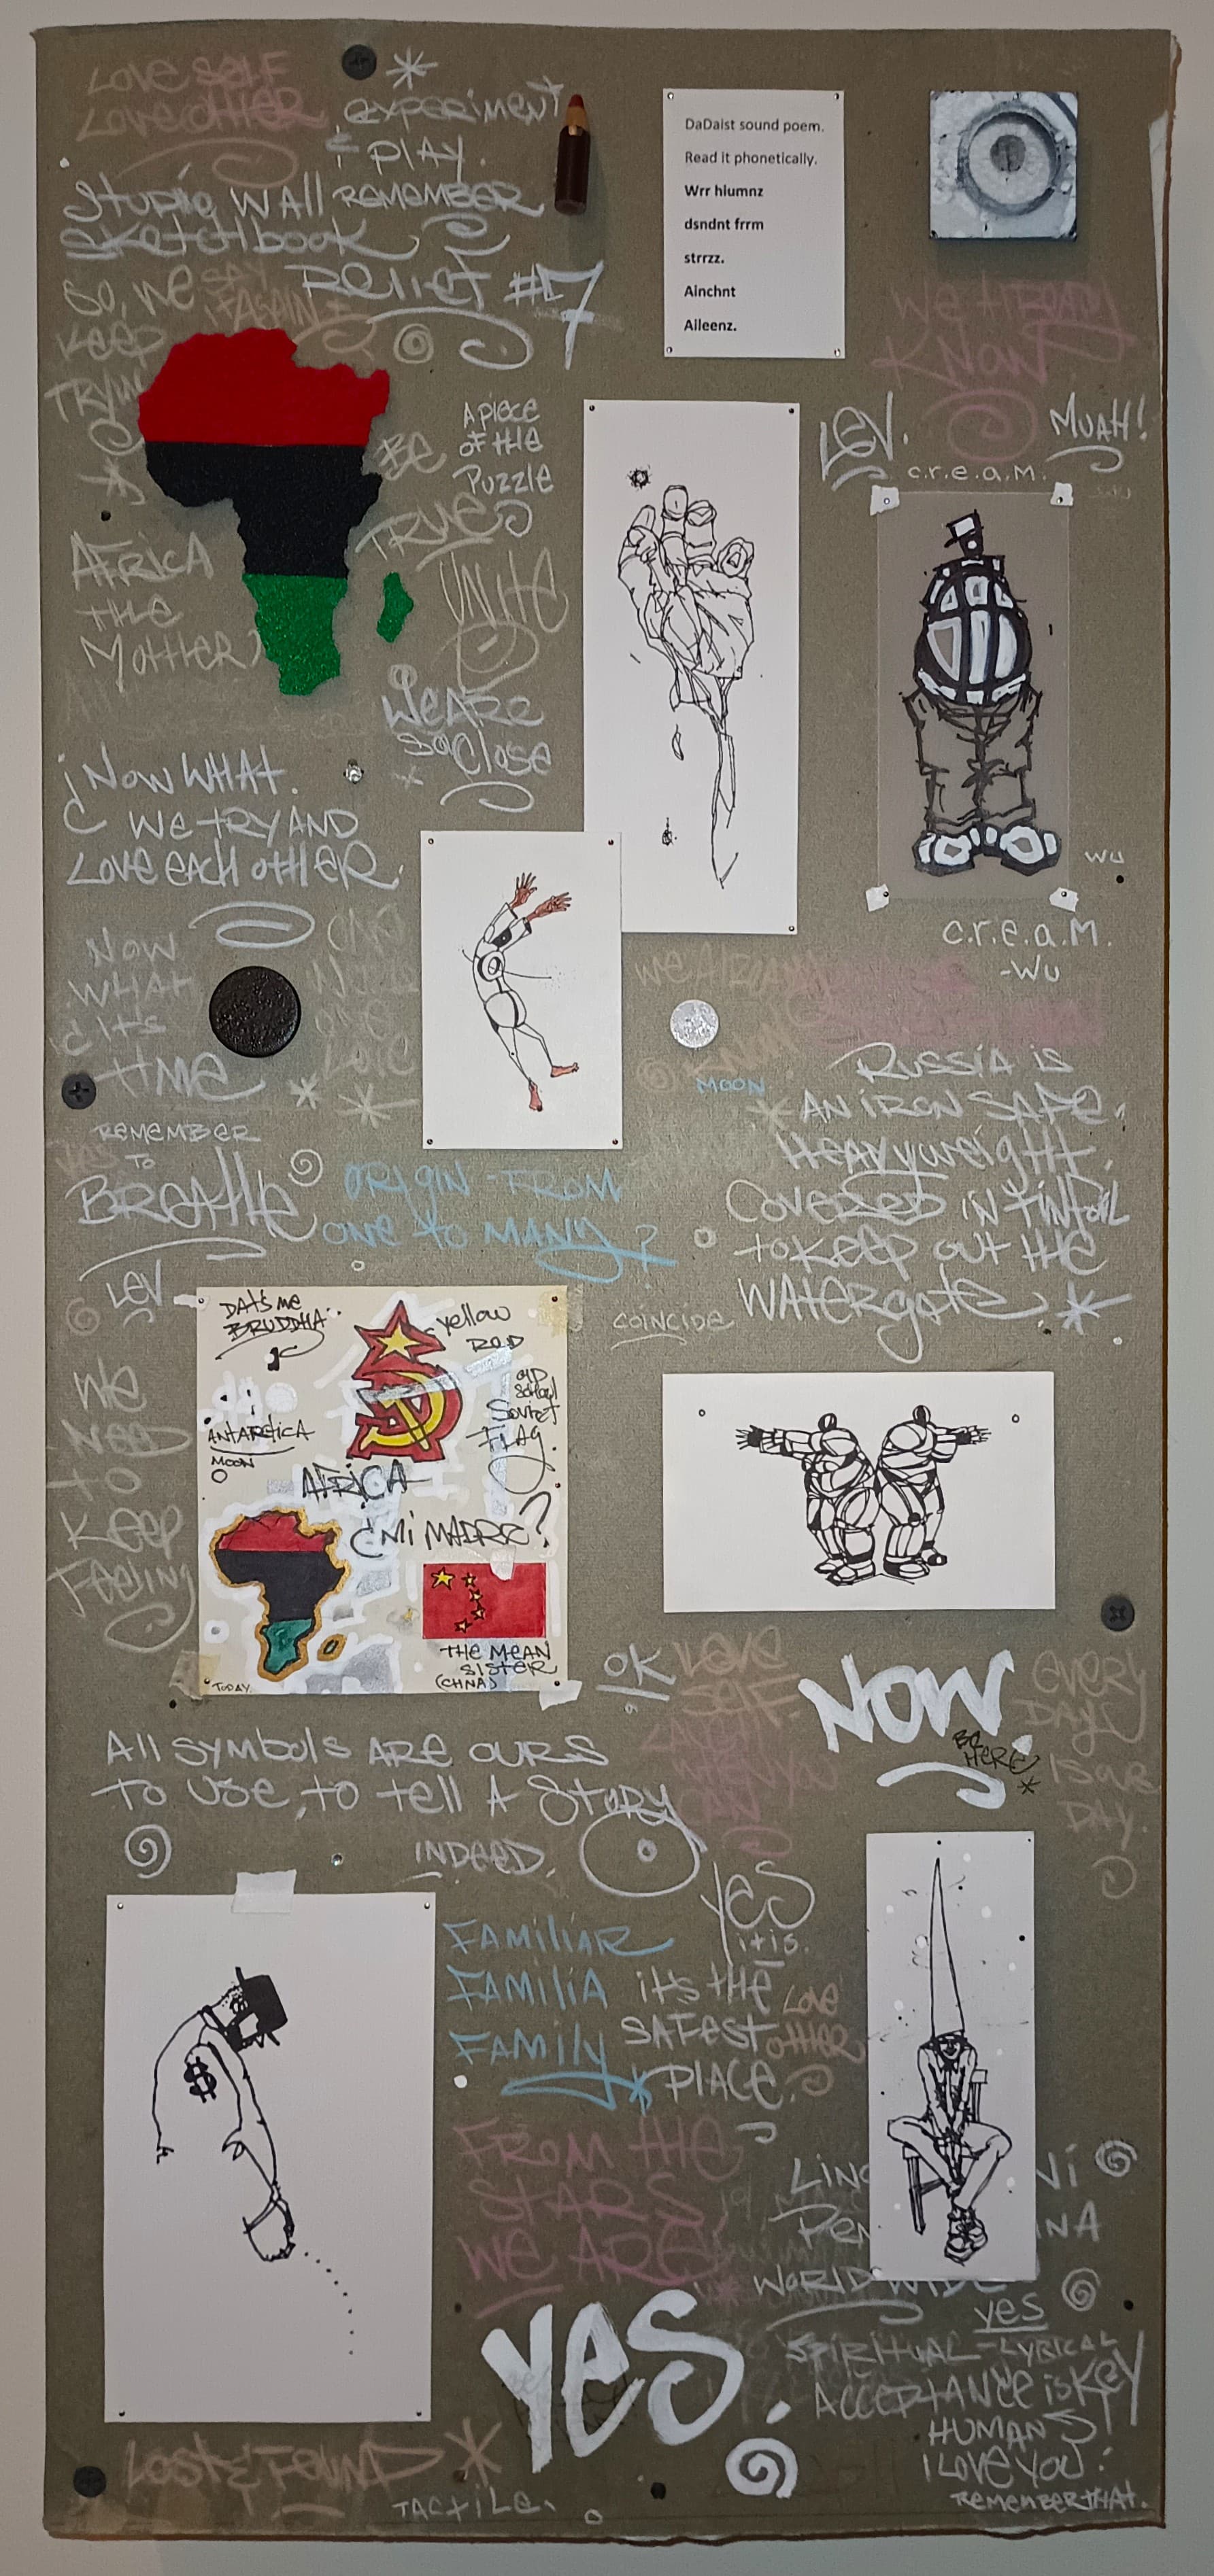 LOVE SELF
LOVE OTHER
* EXPERIMENT
& PLAY.
STUDIO WALL REMEMBER
SKETCHBOOK
RELIEF #7
SO, WE
SAY
AGAIN
KEEP
TRYIN
DaDaist sound poem.
Read it phonetically.
Wrr hlumnz
dsndnt frrm
strrzz.
Ainchnt
Aileenz.
KNOW
LEV.
MUAH!
c.r.e.a.m.
A PIECE
OF THE
PUZZLE
BE
TRUE
UNITE
WE ARE
SO CLOSE
AFRICA
THE
MOTHER
¡NOW WHAT.
WE TRY AND
LOVE EACH OTHER.
WU
c.r.e.a.m.
-WU
NOW
WHAT
¿ It's
time
MOON
RUSSIA IS
AN IRON SAFE.
HEAVYWEIGHT
COVERED IN TINFOIL
TO KEEP OUT THE
WATERGATE. *
REMEMBER
TO
BREATHE
LEV
ORIGIN - FROM
ONE TO MANY?
COINCIDE
DAT'S ME
BRUDDHA..
yellow
RED
OLD
SCHOOL
SOVIET
FLAG.
ANTARCTICA
MOON
AFRICA
¿MI MADRE?
THE MEAN
SISTER
(CHINA)
TODAY.
WE
NEED
TO
KEEP
FEELING
OK
LOVE
SELF.
YOU
CAN
NOW.
BE
HERE
*
EVERY
DAY
IS OUR
DAY.
ALL SYMBOLS ARE OURS
TO USE, TO TELL A STORY
INDEED.
YES
it is.
FAMILIAR
FAMILIA
FAMILY
IT'S THE
SAFEST
PLACE.
LOVE
OTHER
$
FROM THE
STARS
WE ARE
WORLD WIDE
yes
SPIRITUAL - LYRICAL
ACCEPTANCE is KEY
HUMANS!
I LOVE YOU.
REMEMBER THAT.
YES.
LOST & FOUND *
TACTILE.